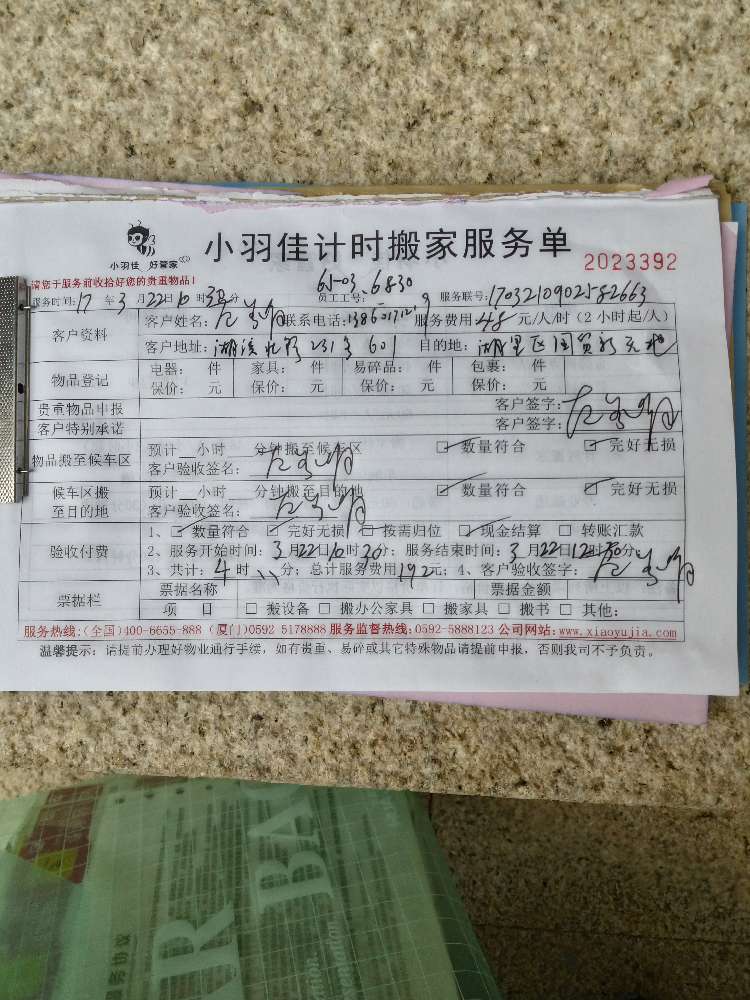 小羽佳 好管家
小羽佳计时搬家服务单
2023392
请您于服务前收拾好您的贵重物品!
65-03 6830
服务时间:17年3月22日10时30分 员工工号: 服务联号:1703210902582663
客户资料
客户姓名: 联系电话: 服务费用48元/人/时(2小时起/人)
客户地址: 231号601 目的地:湖里区国贸新天地
物品登记
电器: 件 家具: 件 易碎品: 件 包裹: 件
保价: 元 保价: 元 保价: 元 保价: 元
贵重物品申报 客户签字:
客户特别承诺 客户签字:
物品搬至候车区
预计__小时__分钟搬至候车区 ☑ 数量符合 ☑ 完好无损
客户验收签名:
候车区搬至目的地
预计__小时__分钟搬至目的地 ☑ 数量符合 ☑ 完好无损
客户验收签名:
验收付费
1、☑ 数量符合 ☑ 完好无损 ☑ 按需归位 ☑ 现金结算 □ 转账汇款
2、服务开始时间:3月22日10时30分;服务结束时间:3月22日12时30分;
3、共计:4时 分;总计服务费用192元;4、客户验收签字:
票据栏
票据名称 票据金额
项 目 □ 搬设备 □ 搬办公家具 □ 搬家具 □ 搬书 □ 其他:
服务热线:(全国)400-6655-888 (厦门)0592 5178888 服务监督热线:0592-5888123 公司网站:www.xiaoyujia.com
温馨提示: 请提前办理好物业通行手续,如有贵重、易碎或其它特殊物品请提前申报,否则我司不予负责。